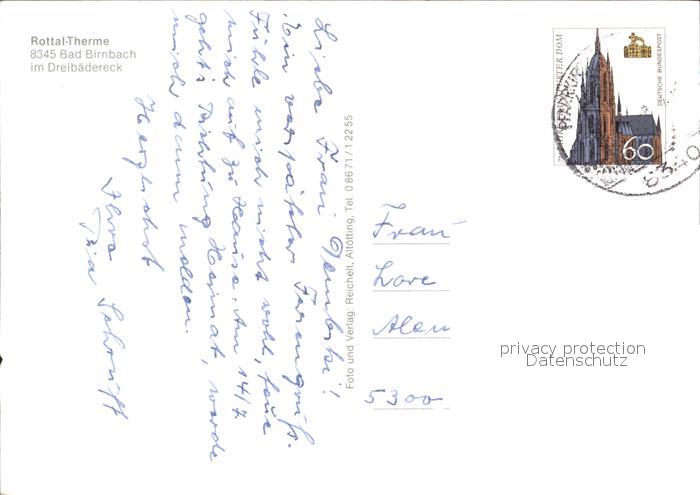 Rottal-Therme
8345 Bad Birnbach
im Dreibädereck
Liebe Frau
Ein verspäteter Feriengruß.
Fühle mich nicht wohl, freue
mich auf zu Hause. Am 14/7.
geht's Richtung Heimat, werde
mich dann melden.
Herzlichst
Ihre
Pia
Foto und Verlag: Reichelt, Altötting, Tel. 08671/12255
FRANKFURTER DOM
DEUTSCHE BUNDESPOST
60
Frau
Lore
5300
privacy protection
Datenschutz